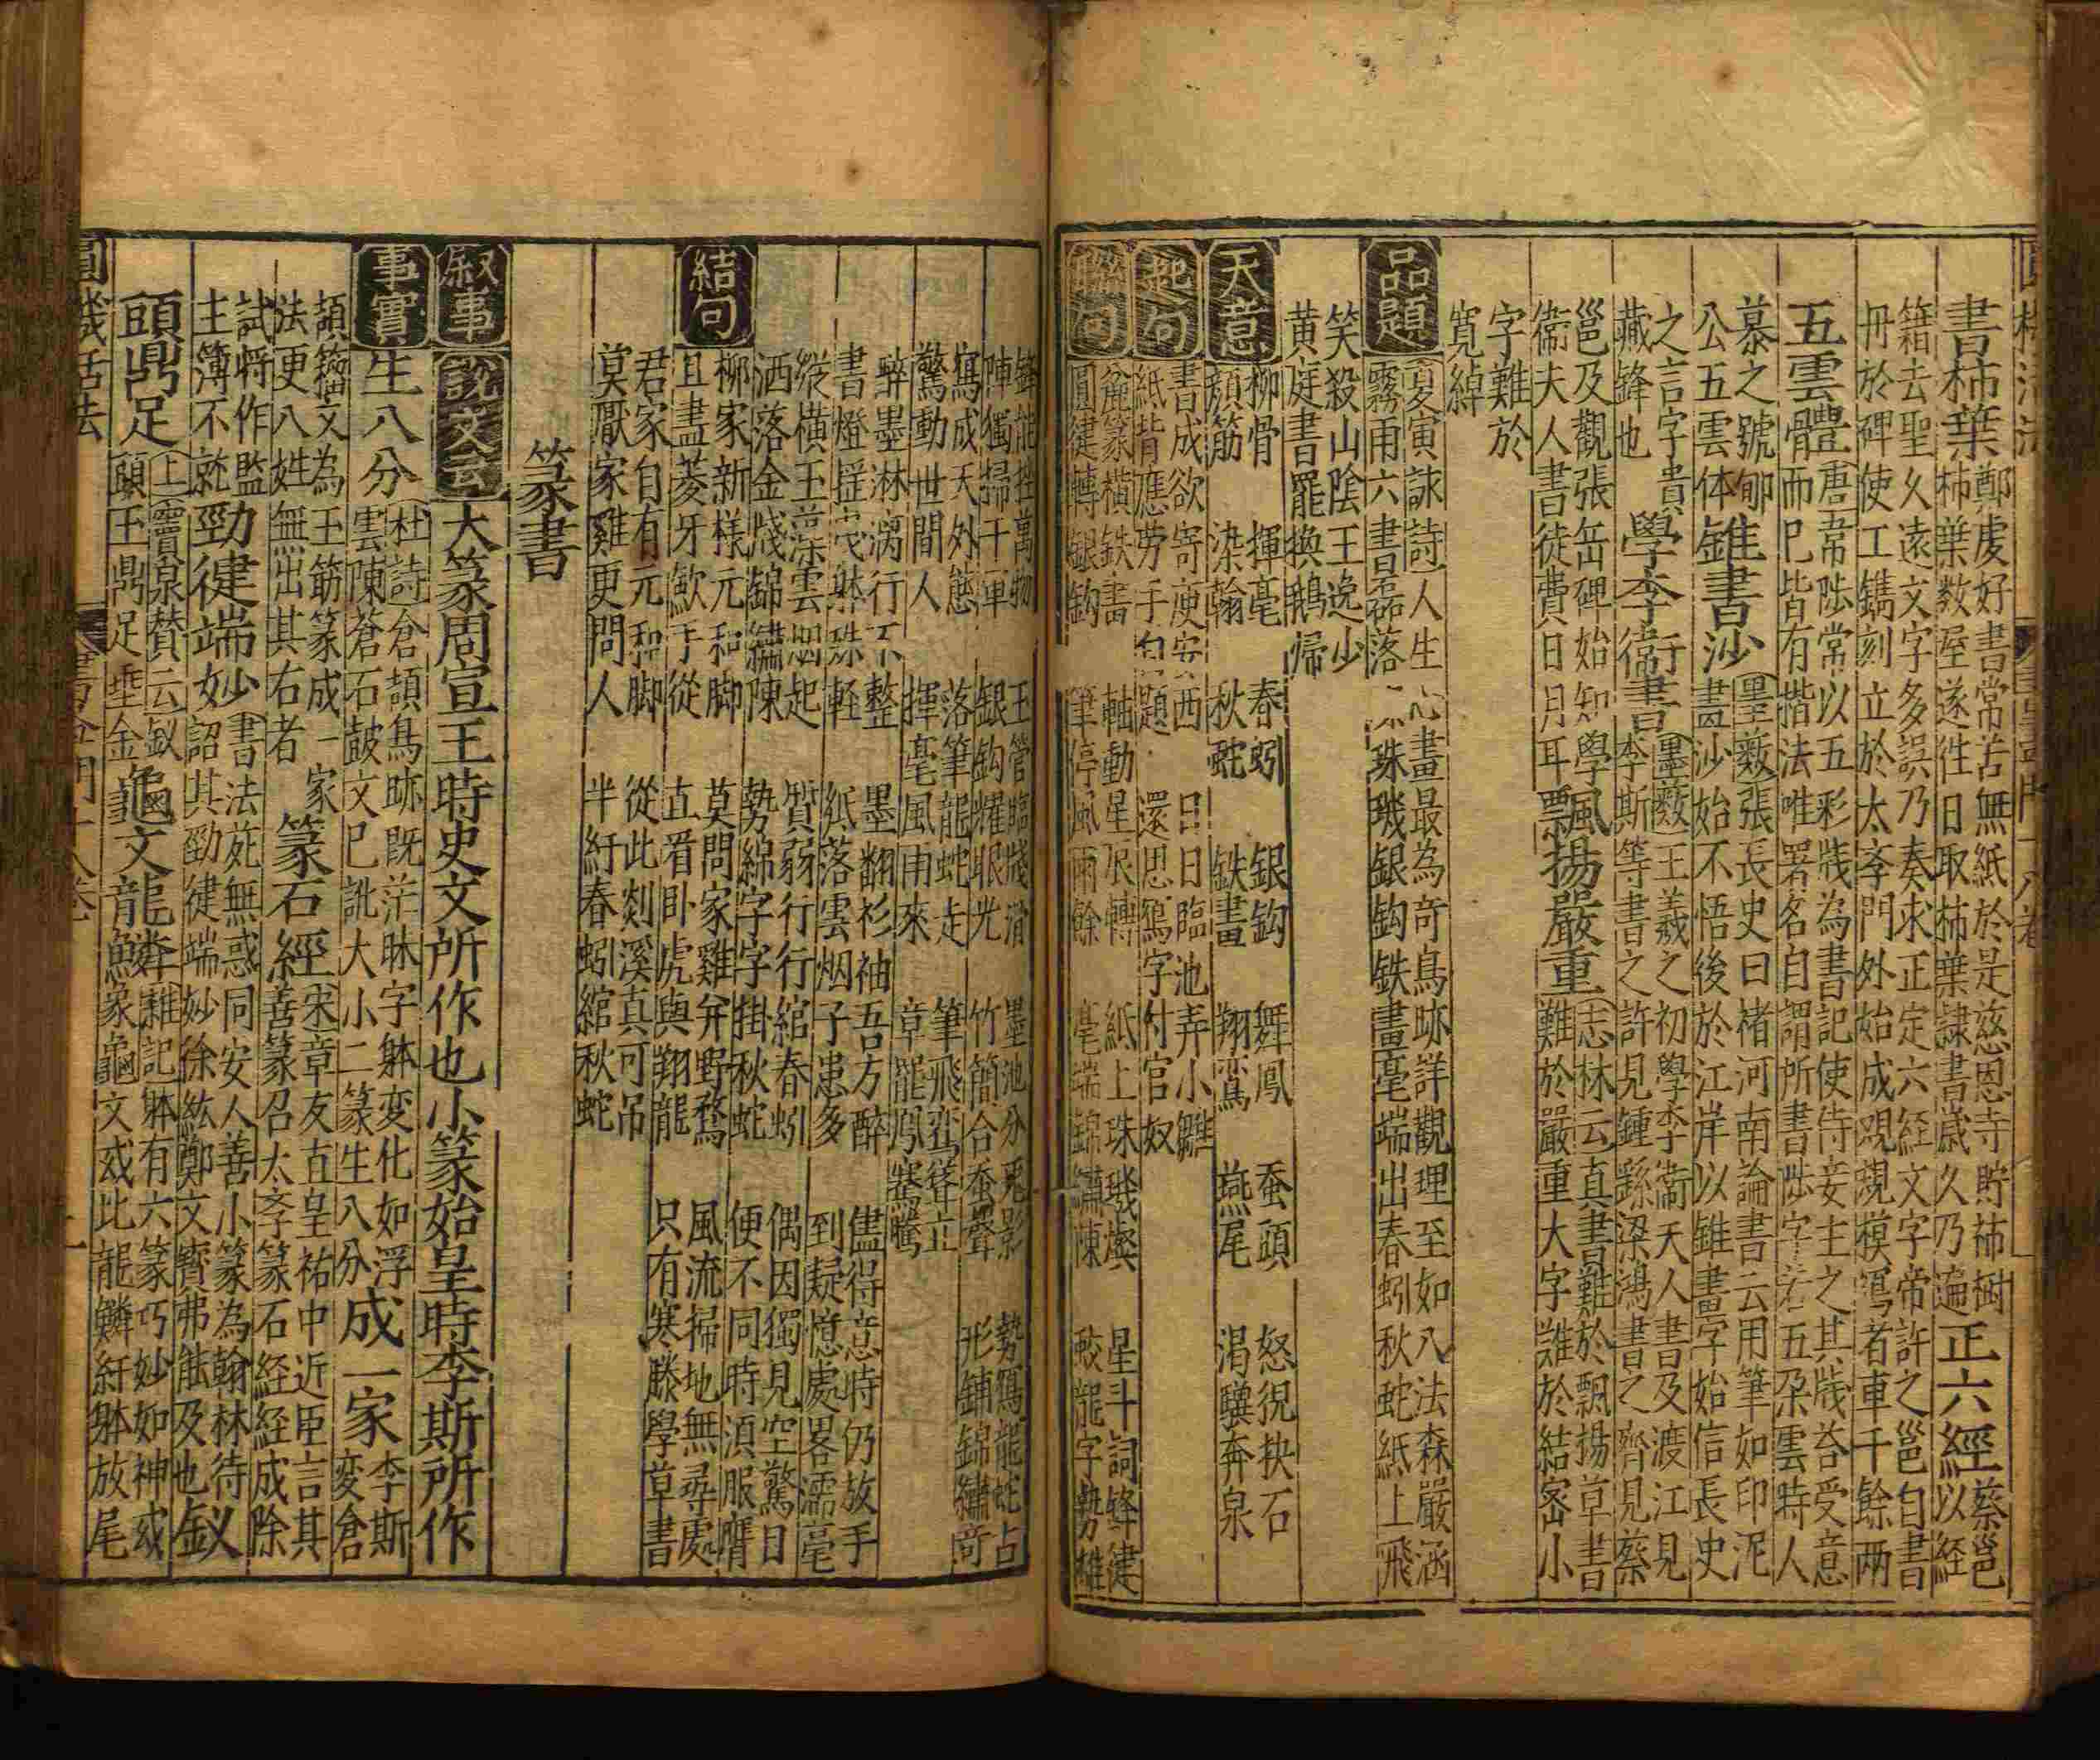 書柿葉
鄭虔好書常苦無紙於是慈恩寺貯柿樹
柿葉数屋遂徃日取柿葉隷書歳久乃遍
正六經
蔡邕
以経
籍去聖久遠文字多誤乃奏求正定六経文字帝許之邕自書
冊於碑使工鐫刻立於太斈門外始成覌䂓模寫者車千餘两
五雲體
唐韋陟常以五彩牋為書記使侍妾主之其牋荅受意
而巳皆有揩法唯署名自謂所書陟字若五朶雲時人
慕之號郇
公五雲体
錐書沙
墨藪張長史曰楮河南論書云用筆如印泥
畫沙始不悟後於江岸以錐畫字始信長史
之言字貴
藏鋒也
學李衛書
墨藪王羲之初學李衞夫人書及渡江見
李斯等書之許見鍾繇梁鴻書之齊見蔡
邕及觀張岳碑始知學
衞夫人書徒費日月耳
飄揚嚴重
志林云真書難於飄揚草書
難於嚴重大字難於結密小
字難於
寛綽
品題
夏寅詠詩人生心畫最為竒鳥跡詳觀理至如八法森嚴涵
霧雨六書磊落 珠璣銀鈎鉄畫毫端出春蚓秋蛇紙上飛
笑殺山陰王逸少
黄庭書罷換鵝歸
天意
柳骨 揮毫 春蚓 銀鈎 舞鳳 蚕頭 怒猊抉石
顏筋 染翰 秋蛇 鉄畫 翔鸞 燕尾 渇驥奔泉
起句
書成欲寄庾安西 日日臨池弄小雛
紙背應勞手自題 還思寫字付官奴
聯句
奩篆横鉄畫 軸動星辰轉 紙上珠璣燦 星斗詞鋒健
圓健轉銀鈎 筆停風雨餘 毫端錦繡陳 蛟龍字勢雄
鋒能挫萬物 玉管臨牋滑 墨池分兎影 勢寫龍蛇占
陣獨掃千軍 銀鈎耀眼光 竹簡合蚕聲 形鋪錦繡竒
寫成天外態 落筆龍蛇走 筆飛鸞聳立
驚動世間人 揮毫風雨來 章罷鳳騫騰
醉墨淋漓行不整 墨翻衫袖吾方醉 儘得意時仍放手
書燈揺 輕 紙落雲烟子患多 到疑憶處畧濡毫
縱横玉藻雲烟起 質弱行行綰春蚓 偶因獨見空驚日
洒落金牋錦繡陳 勢綿字字掛秋蛇 便不同時湏服膺
結句
柳家新様元和脚 莫問家雞弁野鶩 風流掃地無尋處
且盡菱牙歛手從 直看卧虎與翔龍 只有寒藤學草書
君家自有元和脚 從此剡溪真可吊
莫厭家雞更問人 半紆春蚓綰秋蛇
篆書
叙事
說文云
大篆周宣王時史文所作也小篆始皇時李斯所作
事實
生八分
杜詩倉頡鳥跡既茫昧字躰变化如浮
雲陳蒼石皷文巳訛大小二篆生八分
成一家
李斯
変倉
頡籀文為玉筯篆成一家
法更八姓無出其右者
篆石經
宋章友直皇祐中近臣言其
善篆召太斈篆石経経成除
試將作監
主簿不就
勁健端妙
書法苑無惑同安人善小篆為翰林待
詔其勁健端妙徐絃鄭文寳弗能及也
釵
頭鼎足
上竇泉賛云釵
頭玉鼎足垂金
龜文龍鱗
雜記躰有六篆巧妙如神或
象龜文或比龍鱗紆躰放尾